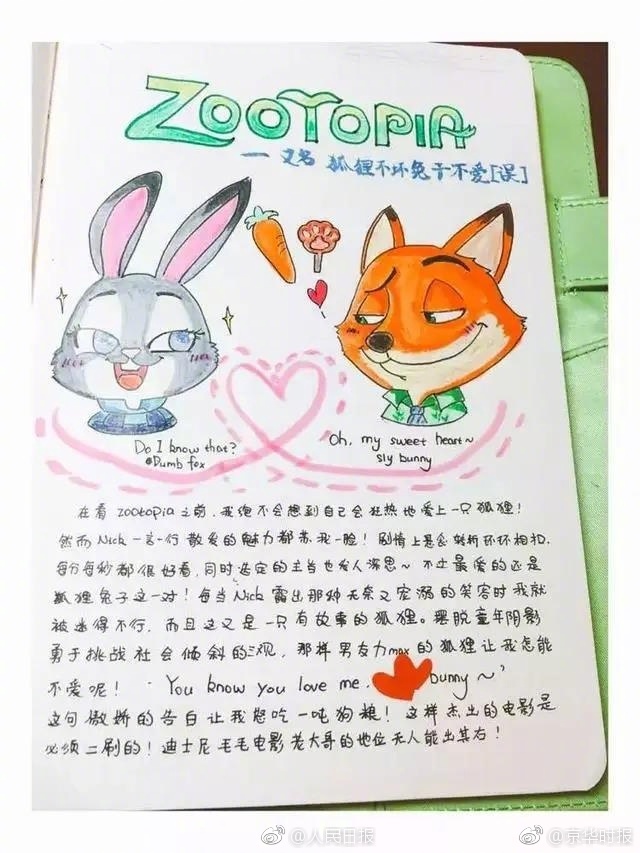 ZOOTOPIA
— 又名 狐狸不坏兔子不爱[误]
Do I know that?
Dumb fox
Oh, my sweet heart~
sly bunny
在看 zootopia 之前,我绝不会想到自己会狂热地爱上一只狐狸!
然而Nick一言一行散发的魅力都苏我一脸! 剧情上悬念转折环环相扣,
每分每秒都很好看,同时选定的主旨也发人深思~ 不过最爱的还是
狐狸兔子这一对! 每当Nick露出那种无奈又宠溺的笑容时我就
被迷得不行,而且这又是一只有故事的狐狸。摆脱童年阴影
勇于挑战社会倾斜的三观,那样男友力max的狐狸让我怎能
不爱呢! "You know you love me, bunny~"
这句傲娇的告白让我想吃一吨狗粮! 这样杰出的电影是
必须二刷的! 迪士尼毛毛电影老大哥的地位无人能出其右!
@人民日报
@京华时报